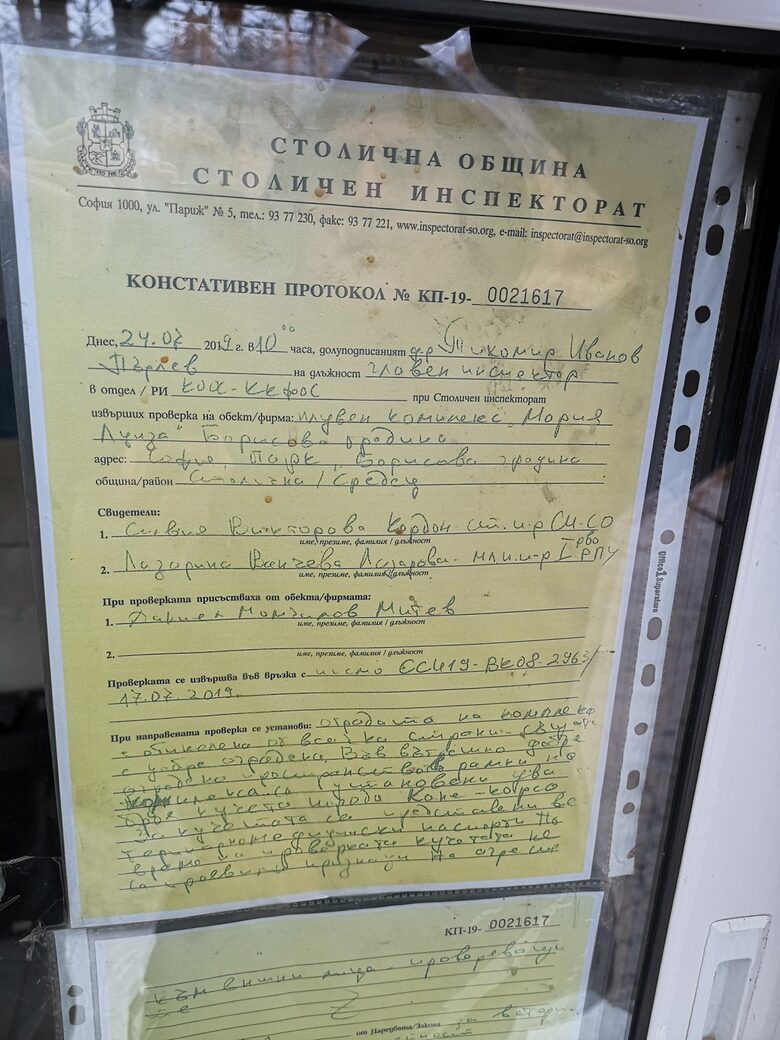 СТОЛИЧНА ОБЩИНА
СТОЛИЧЕН ИНСПЕКТОРАТ
София 1000, ул. "Париж" № 5, тел.: 93 77 230, факс: 93 77 221, www.inspectorat-so.org, e-mail: inspectorat@inspectorat-so.org
КОНСТАТИВЕН ПРОТОКОЛ № КП-19- 0021617
Днес, 24.07 2019 г. в 10⁰⁰ часа, долуподписаният д-р Тихомир Иванов
Първев на длъжност главен инспектор
в отдел / РИ КООС-ККФОС при Столичен инспекторат
извърших проверка на обект/фирма: плувен комплекс "Мария
Луиза" Борисова градина
адрес: София, Парк "Борисова градина
община/район Столична / Средец
Свидетели:
1. Силвия Викторова Кордон ст. и-р СИ-СО
име, презиме, фамилия / длъжност
2. Лазарина Ванчева Лазарова - мл. и-р I РПУ
име, презиме, фамилия / длъжност
При проверката присъстваха от обекта/фирмата:
1. Даниел Момчилов Митев
име, презиме, фамилия / длъжност
2.
име, презиме, фамилия / длъжност
Проверката се извършва във връзка с писмо ЕСИ19-ВК08-2963/
17.07.2019.
При направената проверка се установи: оградата на комплекса
от всички страни
е добре оградена, Във вътрешно
оградено пространство в рамки на
комплекса са установени два
броя кучета порода Кане-корсо
За кучетата са представени ве-
теринарномедицински паспорти По
време на проверката кучетата не
са проявили признаци на агресия
Office 1 Superstore
КП-19- 0021617
към външни лица - проверяващи
те
от Наредбата/Закона за ветери